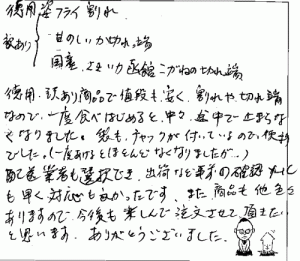 徳用 姿フライ 割れ
訳あり
甘のしいか切れ端
国産 さきいか 函館こがねの切れ端
徳用・訳あり商品で値段も安く、割れや切れ端
なので、一度食べはじめると、中々、途中で止まらな
くなりました。袋も、チャックが付いているので、便利
でした。(一度あけるとほとんどなくなりましたが…)
配送業者も選択でき、出荷など事前の確認メール
も早く対応も良かったです。また商品も他色々
ありますので、今後も楽しんで注文させて頂きたい
と思います。ありがとうございました。